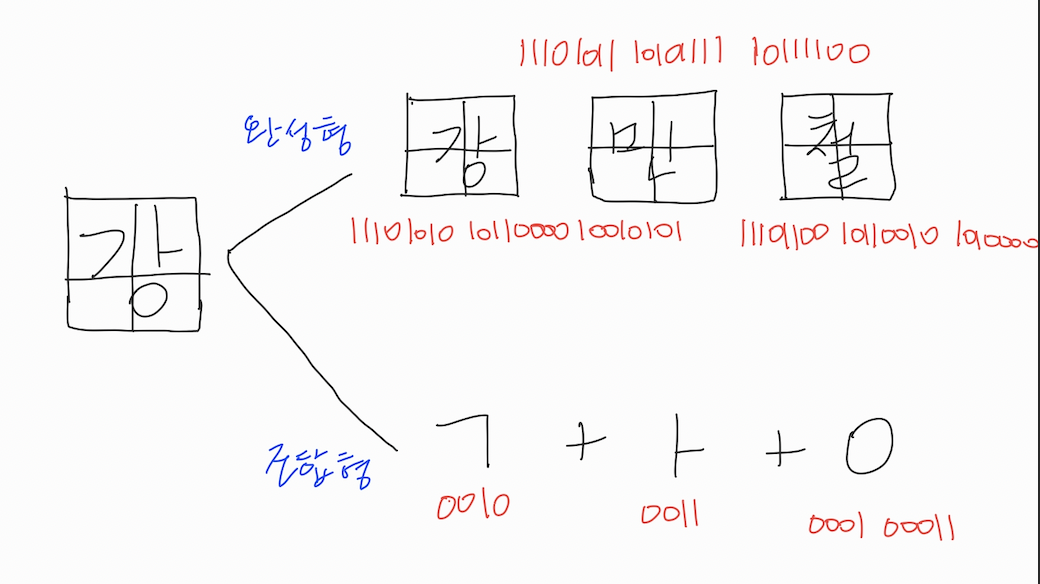 11101011 10101111 10111100
완성형
강 만 철
11101010 10110000 10010101
11101100 10110010 1010000
강
조합형
ㄱ + ㅏ + ㅇ
0010
0011
0001 00011